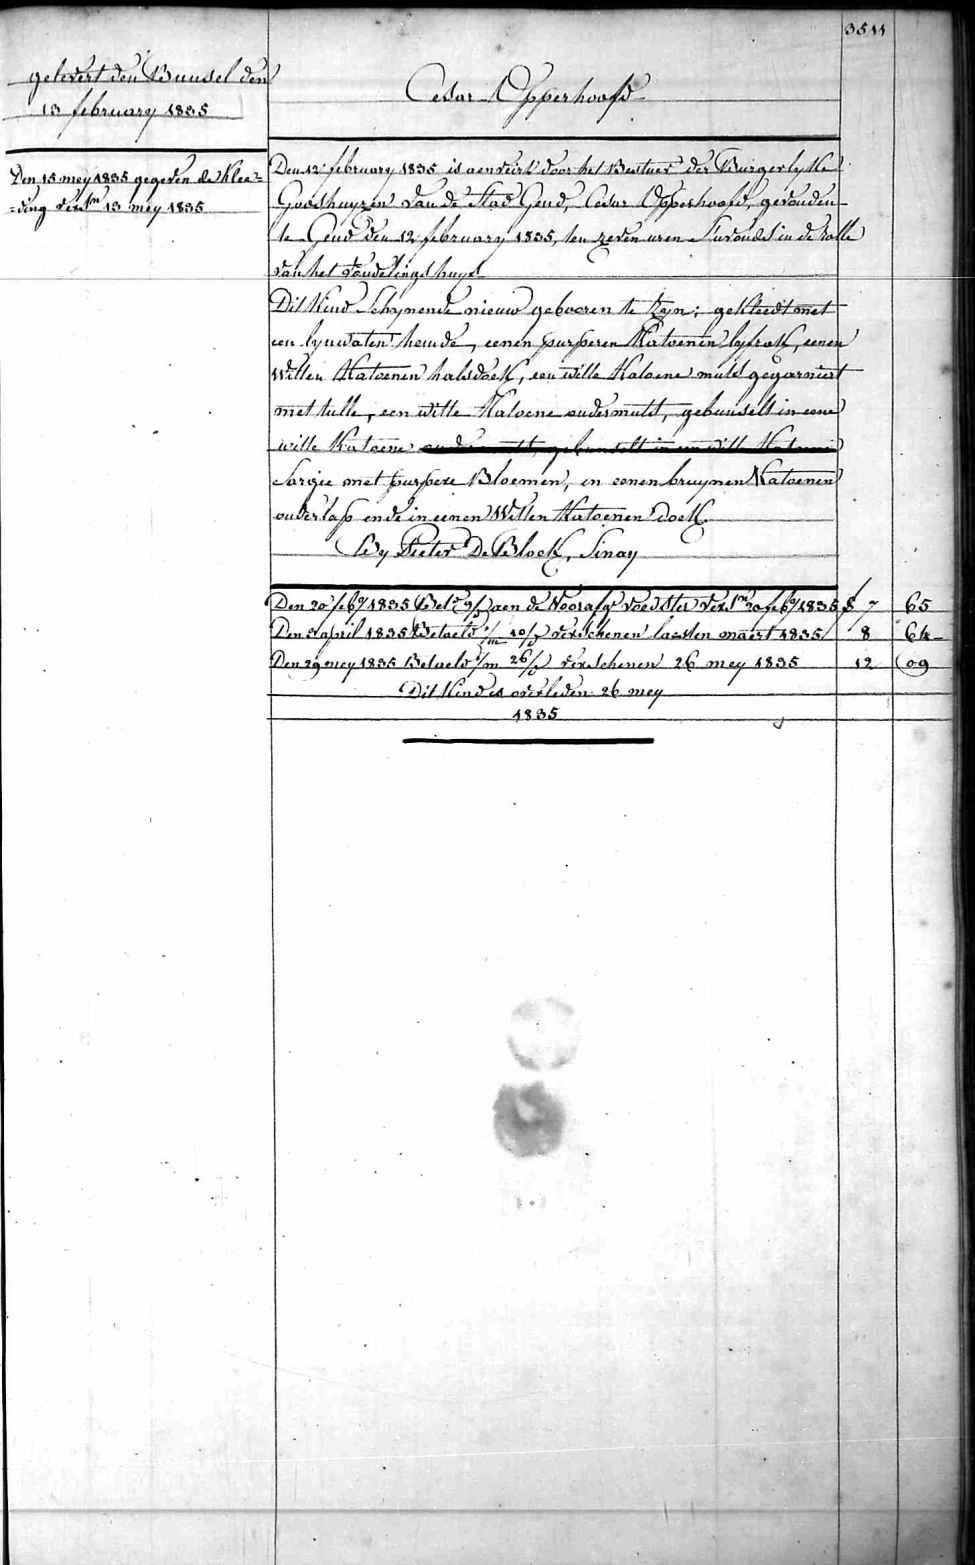 3511
gelevert den Bunsel den
13 february 1835
Cesar Opperhoofd
Den 15 mey 1835 gegeven de klee=
=ding vers.^en 13 mey 1835
Den 12 february 1835 is aenveirt door het Bestuer der Burgerlyke
Godshuyzen van de Stad Gend, Cesar Opperhoofd, gevonden
te Gend den 12 february 1835, ten zeven uren s'avonds in de rolle
van het vondelingshuys
Dit Kind Schynende nieuw gebooren te zyn; gekleedt met
een lynwaten hemde, eenen purperen Katoenen lyfrok, eenen
Witten Katoenen halsdoek, een witte Katoene muts gegarniert
met tulle, een witte Katoene ondermuts, gebunselt in eene
witte Katoene
Sargie met purpere Bloemen, in eenen bruynen Katoenen
onderlap ende in eenen Witten Katoenen doek.
By Pieter De Block, Sinay
Den 20 feb^y 1835 Bet^d aen de Voorafg^e voedster vers.^en 20 feb^y 1835 7 65
Den 3 april 1835 Betaeld verschenen laesten maert 1835 8 64
Den 29 mey 1835 Betaeld verschenen 26 mey 1835 12 09
Dit Kind is overleden 26 mey
1835